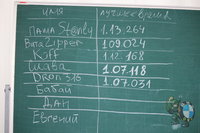 имя лучшее время
Паша Stanly 1.13.264
Витя Zipper 1.09.024
Kaff 1.12.168
Слава 1.07.118
DRON 316 1.07.031
Бабай
ДАН
Евгений